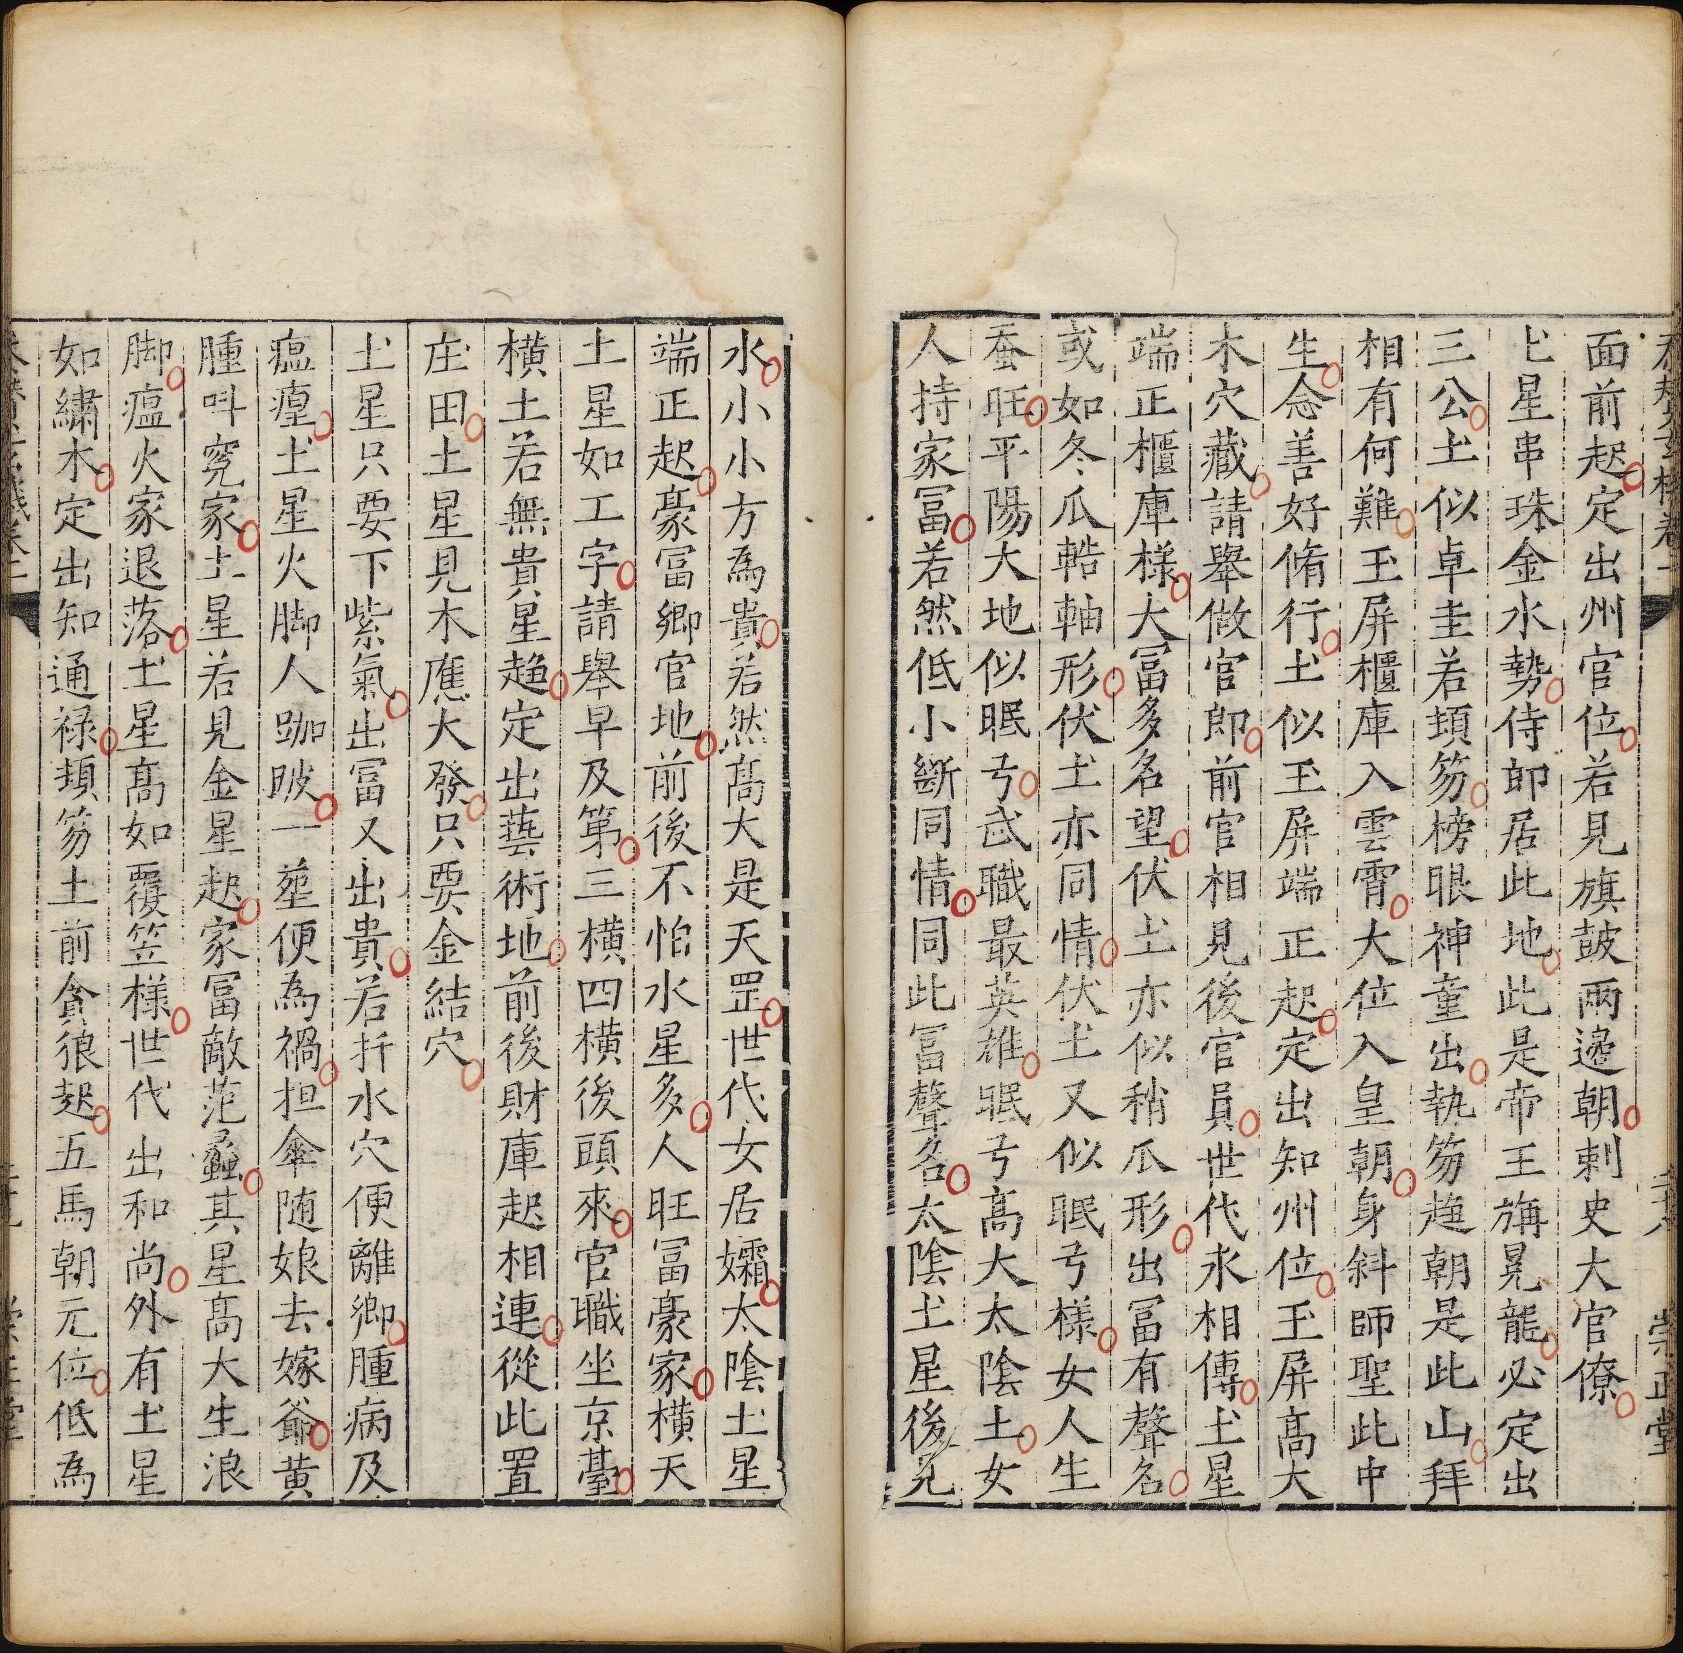 面前起定出州官位若見旗皷兩邊朝刺史大官僚
土星串珠金水勢侍郎居此地此是帝王旛晃龍必定出
三公土似卓圭若頓笏榜眼神童出執笏趨朝是此山拜
相有何難玉屏櫃庫入雲霄大位入皇朝身斜師聖此中
生念善好脩行土似玉屏端正起定出知州位玉屏髙大
木穴藏請舉做官郎前官相見後官員世代永相傳土星
端正櫃庫樣大冨多名望伏土亦似稍瓜形出冨有聲名
或如冬瓜輅軸形伏土亦同情伏土又似眠弓樣女人生
蚕旺平陽大地似眠弓武職最英雄眠弓髙大太陰土女
人持家冨若然低小斷同情同此冨聲名太陰土星後兄
水小小方為貴若然髙大是天罡世代女居孀太陰土星
端正起豪冨卿官地前後不怕水星多人旺冨豪家横天
土星如工字請舉早及第三横四横後頭來官職坐京臺
横土若無貴星趨定出藝術地前後財庫起相連從此置
庄田土星見木應大發只要金結穴
土星只要下紫氣出冨又出貴若扦水穴便離卿腫病及
瘟𤺋土星火脚人跏跛一塟便為禍担傘随娘去嫁爺黄
腫呌寃家土星若見金星起家冨敵范蠡其星髙大生浪
脚瘟火家退落土星髙如覆笠樣世代出和尚外有土星
如繡木定出知通禄頓笏土前貪狼起五馬朝元位低為